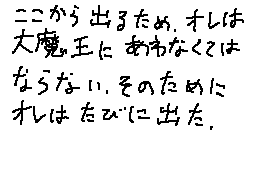 ここから出るため、オレは
大魔王に あわなくては
ならない、そのために
オレは たびに出た、